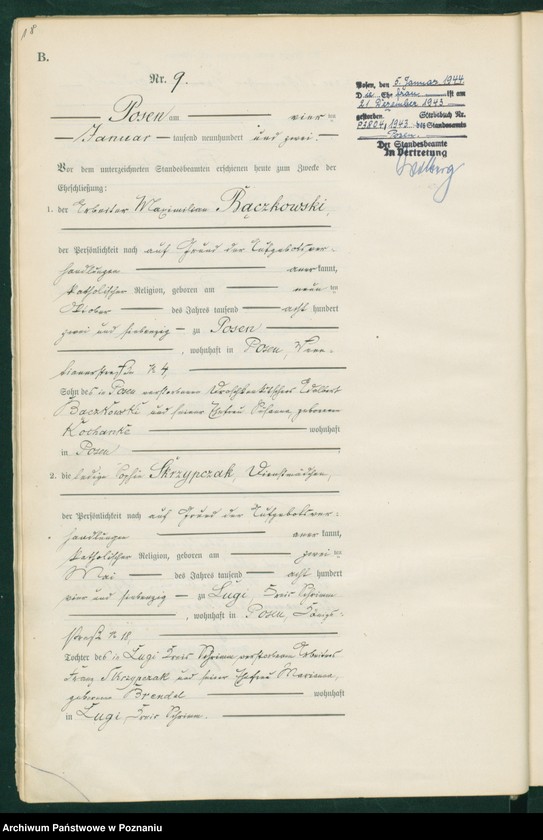 18
B.
Nr. 9.
Posen am vierten
Januar tausend neunhundert und zwei.
Vor dem unterzeichneten Standesbeamten erschienen heute zum Zwecke der
Eheschließung:
1. der Arbeiter Maximilian Bączkowski,
der Persönlichkeit nach auf Grund der Aufgebotsver-
handlungen anerkannt,
katholischer Religion, geboren am neunten
Oktober des Jahres tausend acht hundert
zwei und siebenzig zu Posen
, wohnhaft in Posen,
straße № 4,
Sohn des in Posen verstorbenen Droschkenkutschers Adalbert
Bączkowski und seiner Ehefrau Susanna, geborenen
Kochanke wohnhaft
in Posen
2. die ledige Sophie Skrzypczak, Dienstmädchen,
der Persönlichkeit nach auf Grund der Aufgebotsver-
handlungen anerkannt,
katholischer Religion, geboren am zweiten
Mai des Jahres tausend acht hundert
vier und siebenzig zu Lugi, Kreis Schrimm
, wohnhaft in Posen,
straße № 18,
Tochter des in Lugi Kreis Schrimm verstorbenen Arbeiters
Franz Skrzypczak und seiner Ehefrau Marianna,
geborene Brendel wohnhaft
in Lugi, Kreis Schrimm.
Posen, den 5. Januar 1944
Die Ehefrau ist am
21. Dezember 1943
gestorben. Sterbebuch Nr.
1943 des Standesamts
Posen.
Der Standesbeamte
In Vertretung
Archiwum Państwowe w Poznaniu